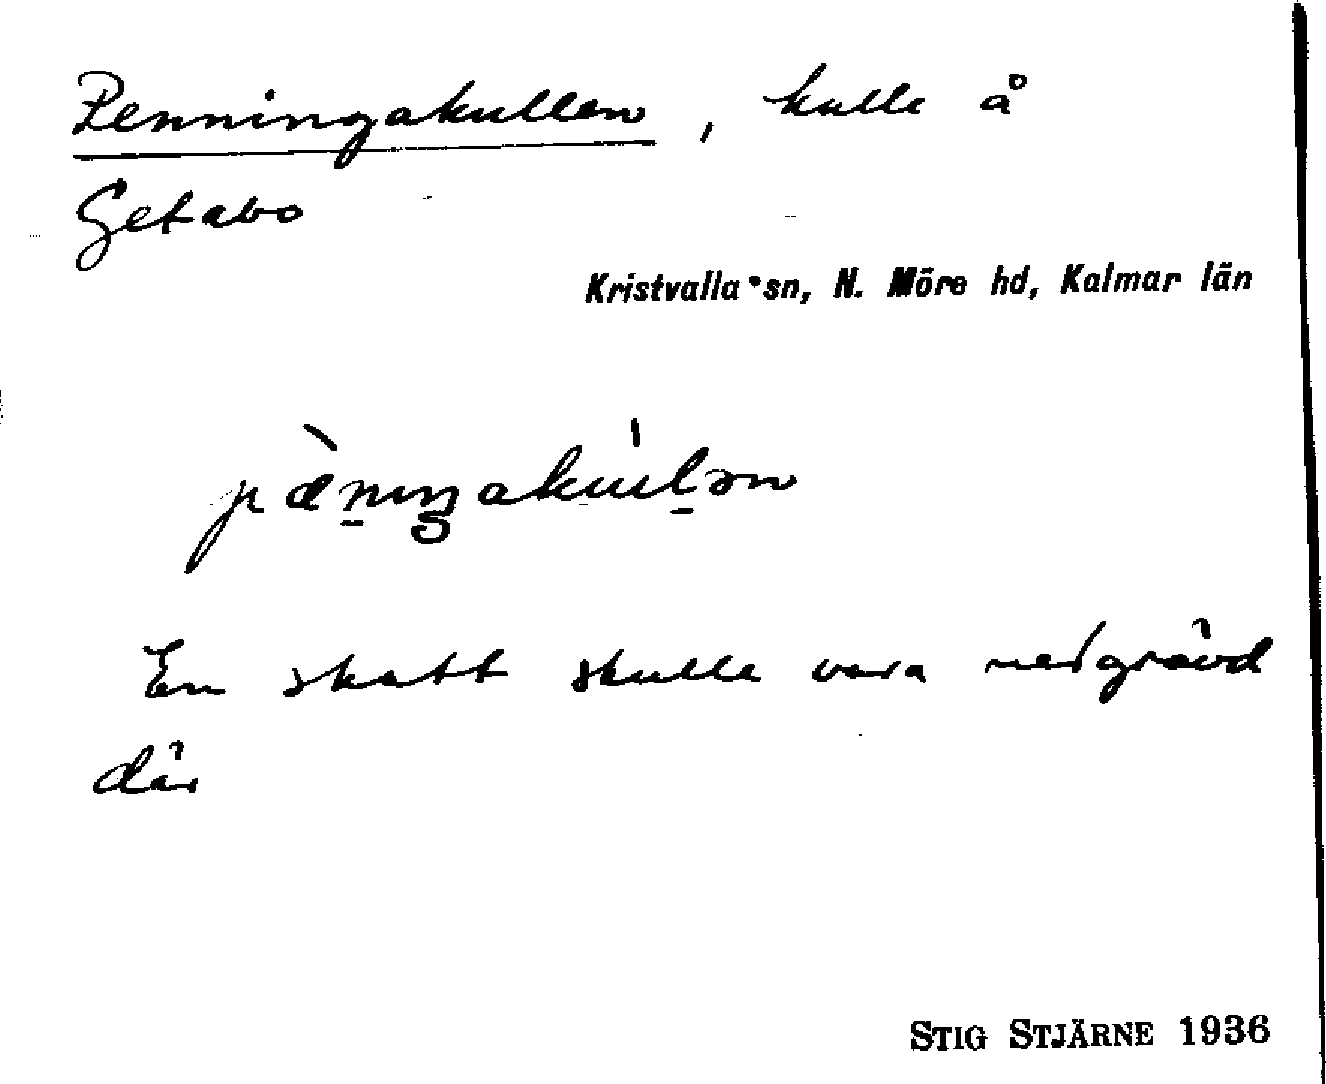 Penningakullen, kulle å
Getabo
Kristvalla sn, N. Möre hd, Kalmar län
En skatt skulle vara nedgrävd
där
STIG STJÄRNE 1936